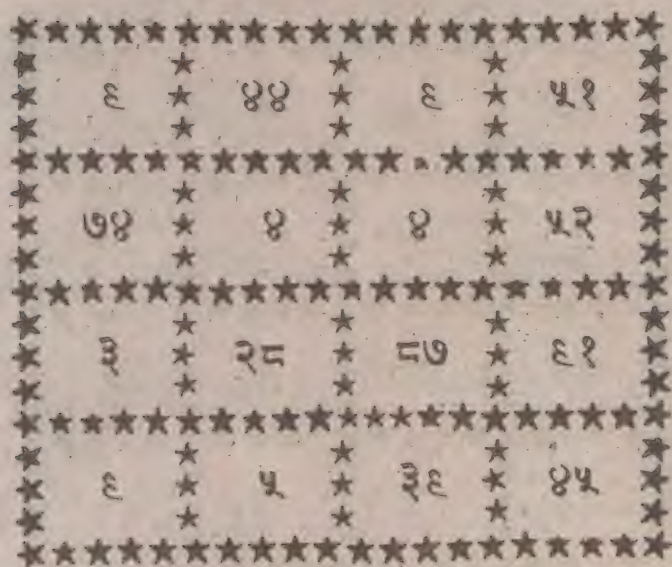 ६ ४४ ६ ५१
७४ ४ ४ ५२
३ २८ ८७ ६१
६ ५ ३६ ४५